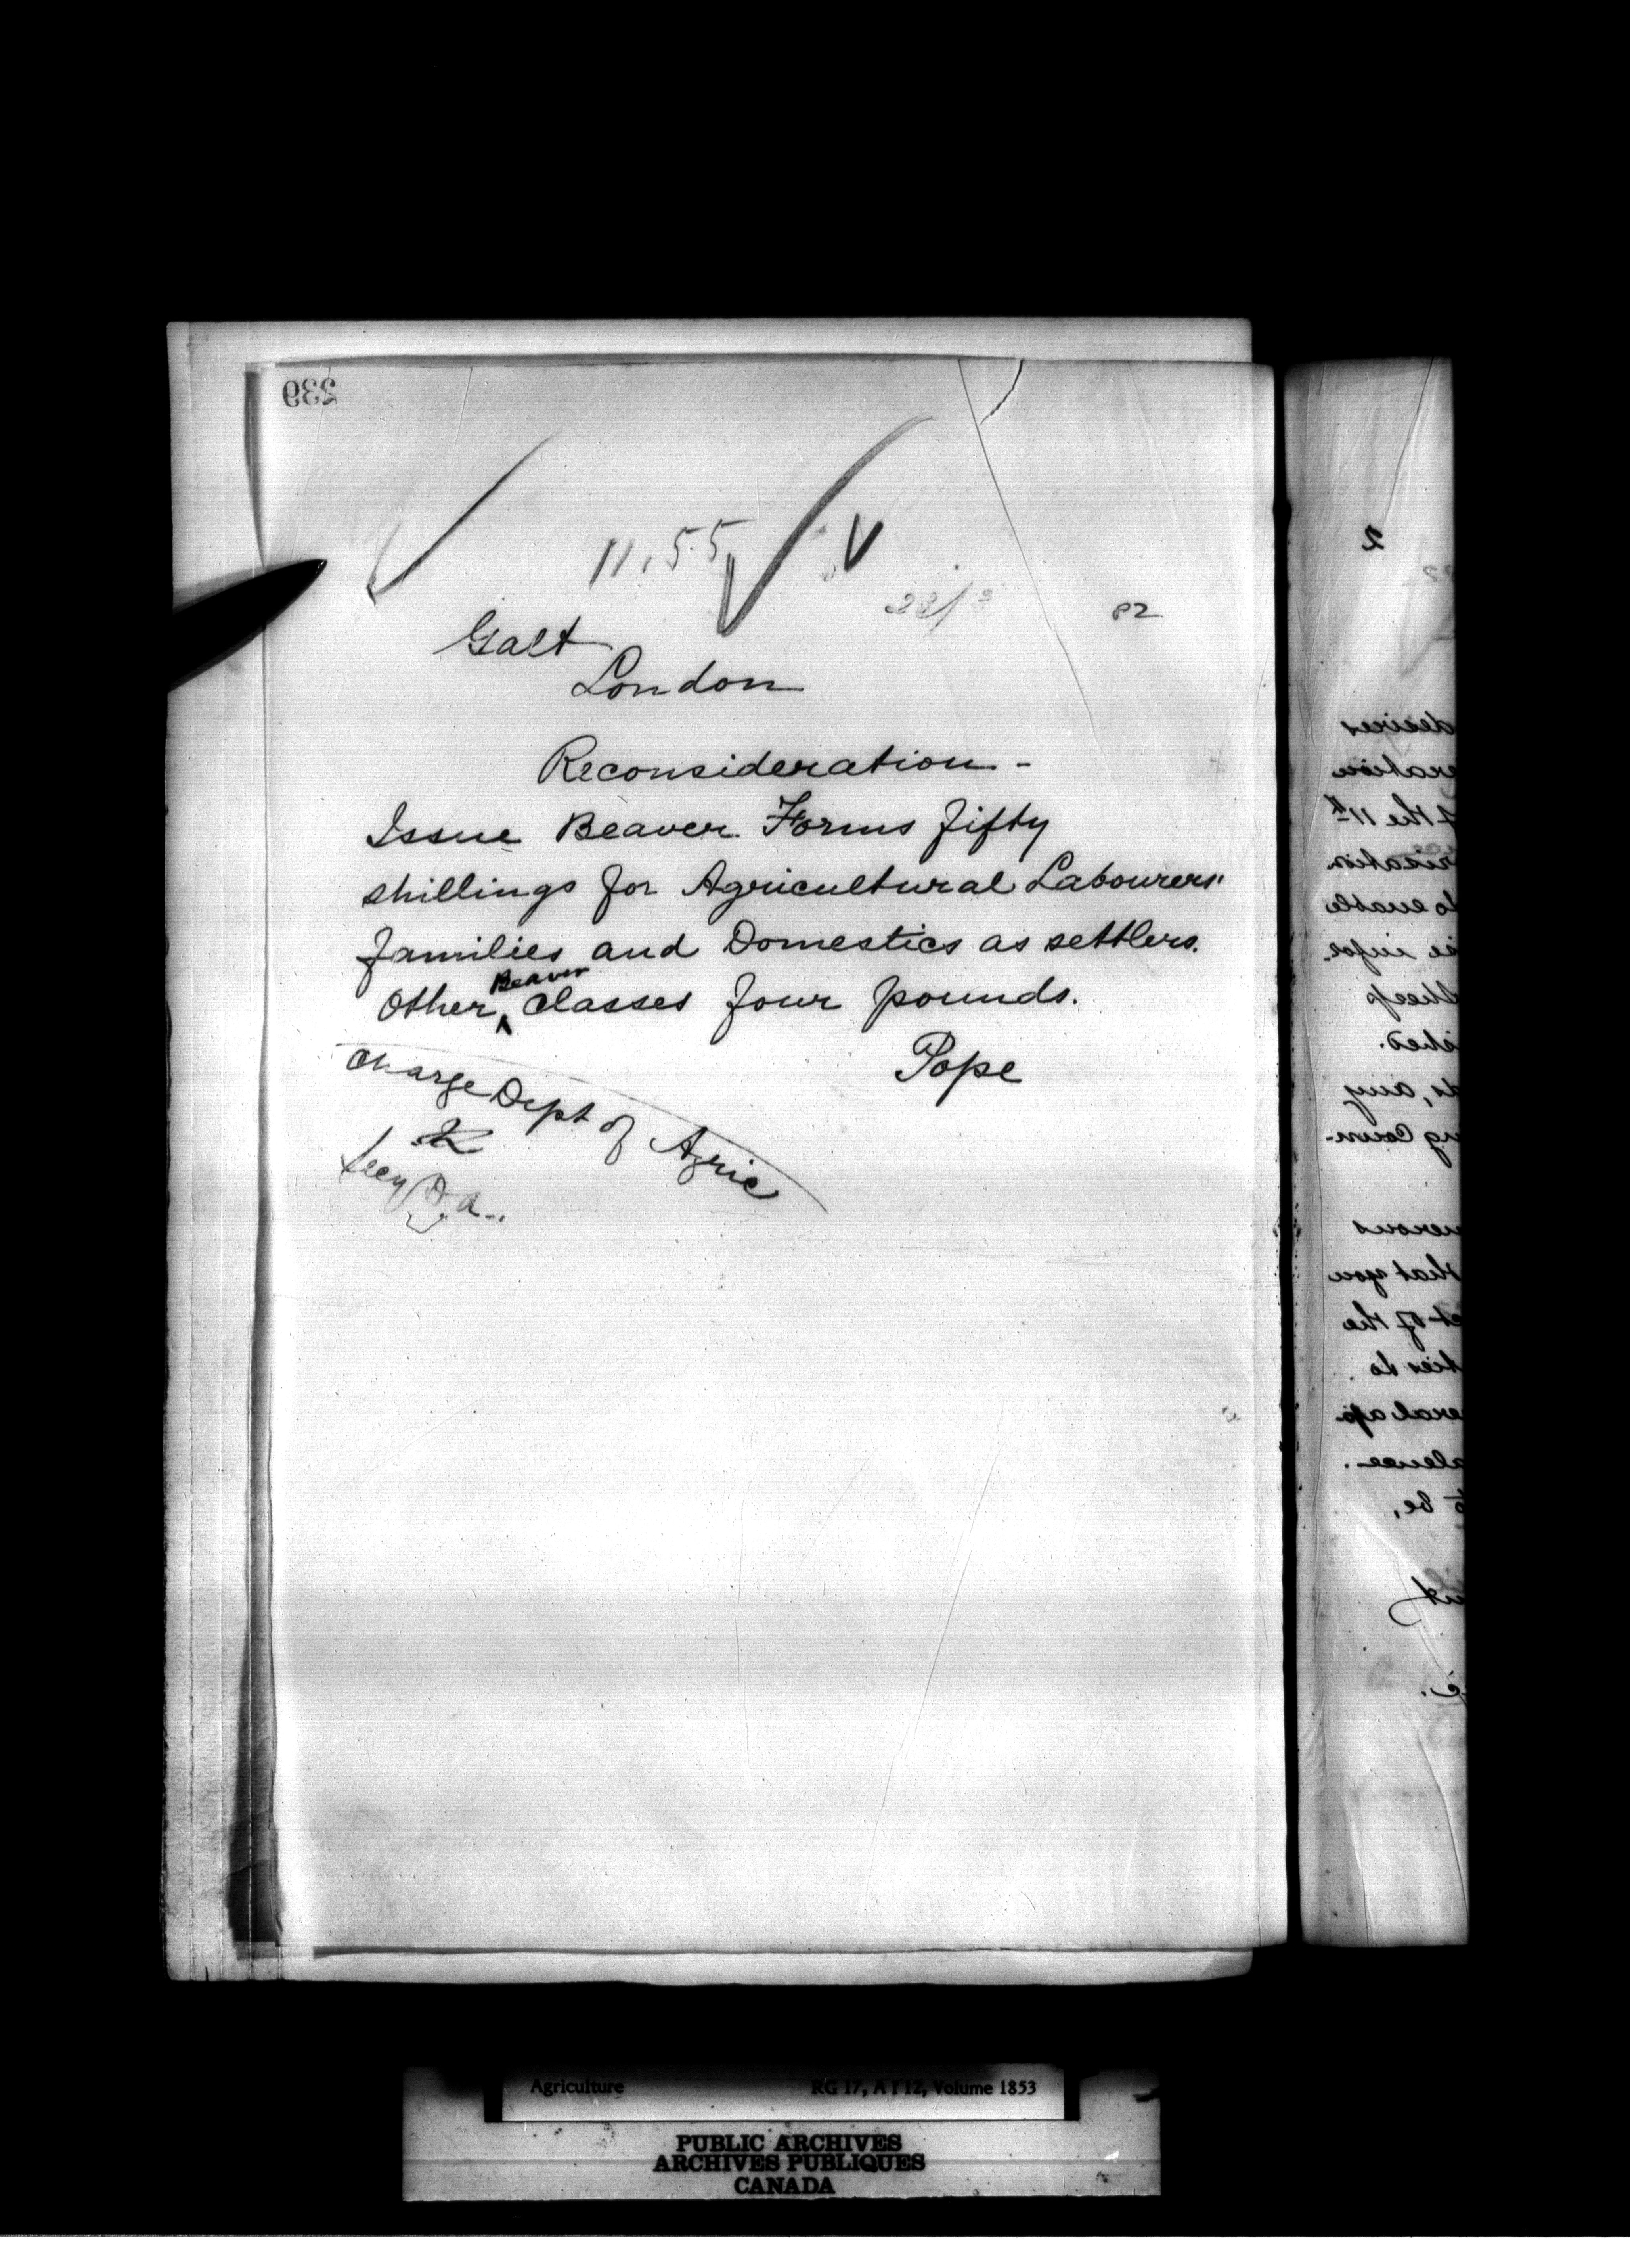 239
11.55
28/3
82
Galt
London
Reconsideration -
Issue Beaver Forms fifty
shillings for Agricultural Labourers'
families and Domestics as settlers.
Other Beaver classes four pounds.
Pope
Charge Dept of Agric
Secy D. A.
2
desires
eration
the 11th
to enable
infor-
sheep
any
ing Coun-
that you
of the
ties to
be,
Agriculture RG 17, A I 12, Volume 1853
PUBLIC ARCHIVES
ARCHIVES PUBLIQUES
CANADA